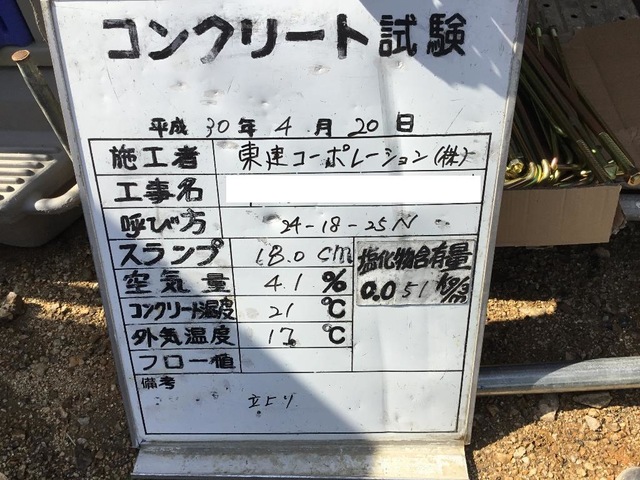 コンクリート試験
平成 30 年 4 月 20 日
施工者 東建コーポレーション(株)
工事名
呼び方 24-18-25N
スランプ 18.0 cm
空気量 4.1 %
コンクリート温度 21 ℃
外気温度 17 ℃
フロー値
塩化物含有量
0.051 kg/㎥
備考
立上り